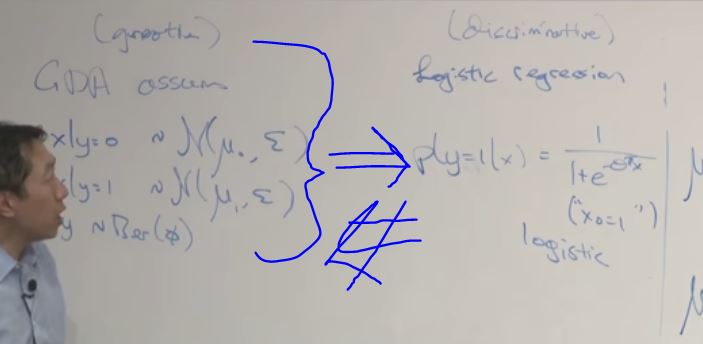 (generative)
GDA assum
x|y=0 ~ N(μ₀, Σ)
x|y=1 ~ N(μ₁, Σ)
y ~ Ber(φ)
⇒
⇍
(discriminative)
Logistic regression
p(y=1|x) = 1/(1+e^(-θᵀx))
("x₀=1")
logistic
μ
μ